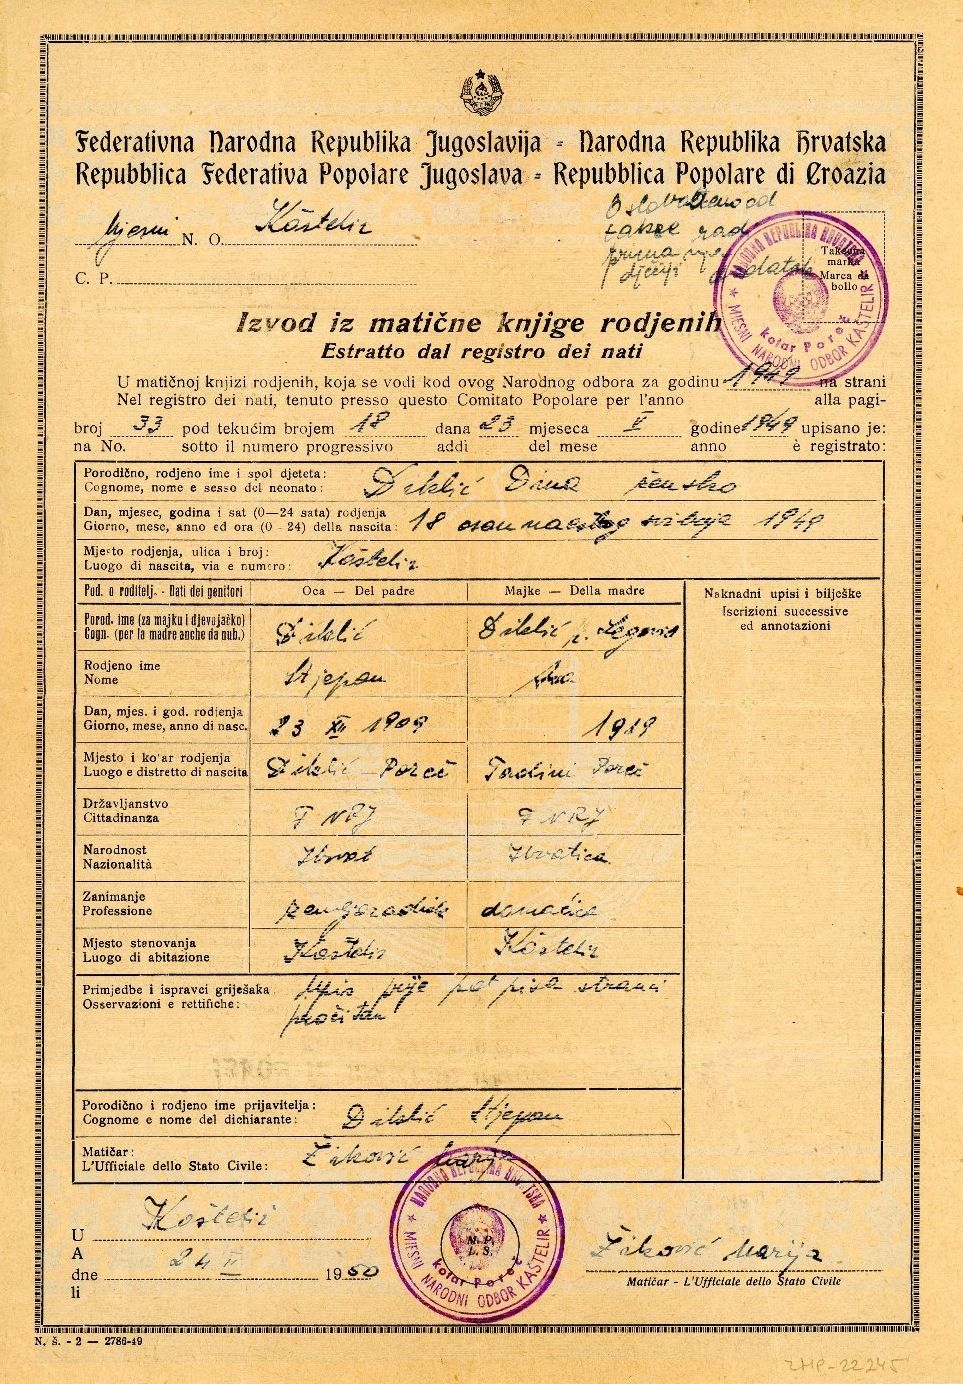 Federativna Narodna Republika Jugoslavija - Narodna Republika Hrvatska
Repubblica Federativa Popolare Jugoslava - Repubblica Popolare di Croazia
Mjesni N. O. Kaštelir
C. P.
Oslobođeno od
takse radi
prima nje
dječji dodatak
Taksena
marka
Marca da
bollo
NARODNA REPUBLIKA HRVATSKA
MJESNI NARODNI ODBOR KAŠTELIR
kotar Poreč
Izvod iz matične knjige rodjenih
Estratto dal registro dei nati
U matičnoj knjizi rodjenih, koja se vodi kod ovog Narodnog odbora za godinu 1949 na strani
Nel registro dei nati, tenuto presso questo Comitato Popolare per l'anno alla pagi-
broj 33 pod tekućim brojem 18 dana 23 mjeseca V godine 1949 upisano je:
na No. sotto il numero progressivo addì del mese anno è registrato:
Porodično, rodjeno ime i spol djeteta:
Cognome, nome e sesso del neonato: Diklić Dina žensko
Dan, mjesec, godina i sat (0—24 sata) rodjenja
Giorno, mese, anno ed ora (0 - 24) della nascita: 18 osamnaestog svibnja 1949
Mjesto rodjenja, ulica i broj:
Luogo di nascita, via e numero: Kaštelir
Pod. o roditelj. - Dati dei genitori Oca — Del padre Majke — Della madre
Naknadni upisi i bilješke
Iscrizioni successive
ed annotazioni
Porod. ime (za majku i djevojačko)
Cogn. (per la madre anche da nub.) Diklić Diklić r. Legović
Rodjeno ime
Nome Stjepan Ana
Dan, mjes. i god. rodjenja
Giorno, mese, anno di nasc. 23 XII 1909 1919
Mjesto i kotar rodjenja
Luogo e distretto di nascita Diklić - Poreč Tadini Poreč
Državljanstvo
Cittadinanza FNRJ FNRJ
Narodnost
Nazionalità Hrvat Hrvatica
Zanimanje
Professione zemljoradnik domaćica
Mjesto stanovanja
Luogo di abitazione Kaštelir Kaštelir
Primjedbe i ispravci griješaka
Osservazioni e rettifiche: Upis prije potpisa stranci
pročitan
Porodično i rodjeno ime prijavitelja:
Cognome e nome del dichiarante: Diklić Stjepan
Matičar:
L'Ufficiale dello Stato Civile: Živković Marija
NARODNA REPUBLIKA HRVATSKA
MJESNI NARODNI ODBOR KAŠTELIR
kotar Poreč
M. P.
L. S.
U Kaštelir
A
dne 24 II 1950
li
Živković Marija
Matičar - L'Ufficiale dello Stato Civile
N. š. - 2 — 2786-49
ZMP-22245